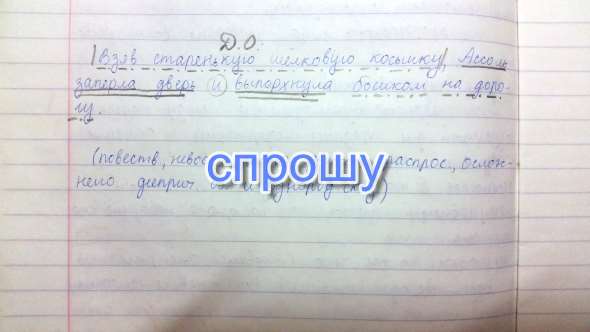 Д.О.
|Взяв старенькую шелковую косынку|, Ассоль
заперла дверь и выпорхнула босиком на доро-
гу.
(повеств., распрос., ослож-
нено
спрошу